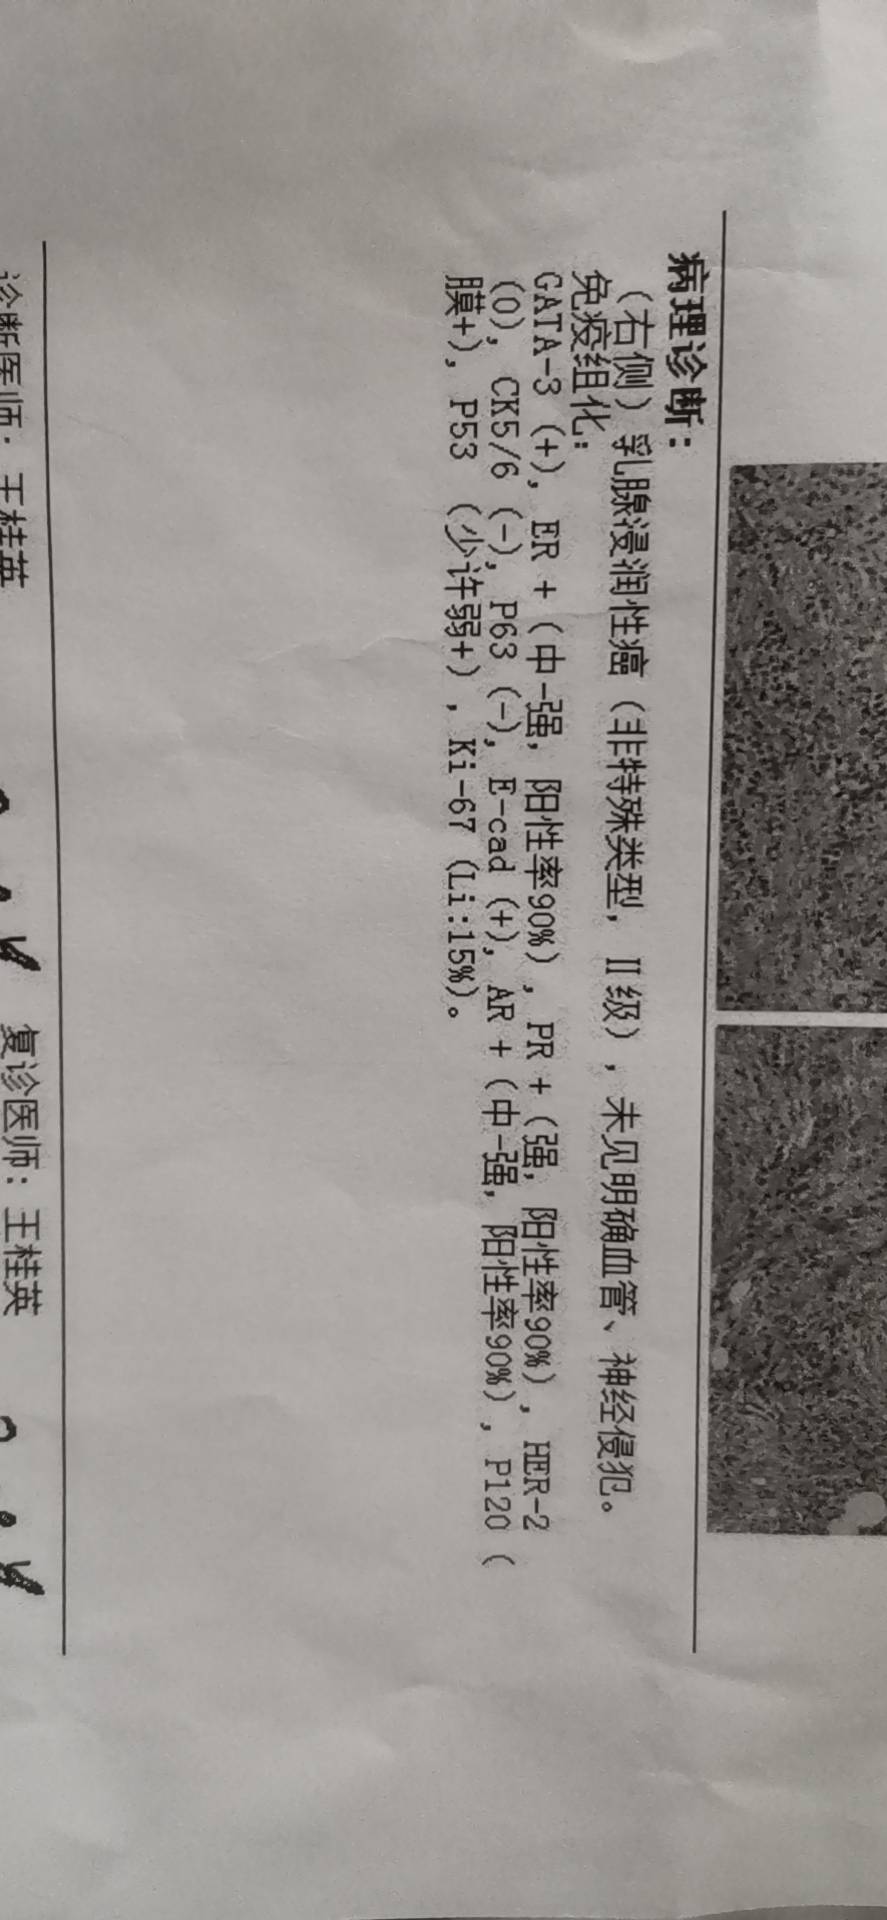 病理诊断：
（右侧）乳腺浸润性癌（非特殊类型，Ⅱ级），未见明确血管、神经侵犯。
免疫组化：
GATA-3（+），ER +（中-强，阳性率90%），PR +（强，阳性率90%），HER-2
（0），CK5/6（-），P63（-），E-cad（+），AR +（中-强，阳性率90%），P120（
膜+），P53（少许弱+），Ki-67(Li:15%)。
诊断医师：王桂英 复诊医师：王桂英